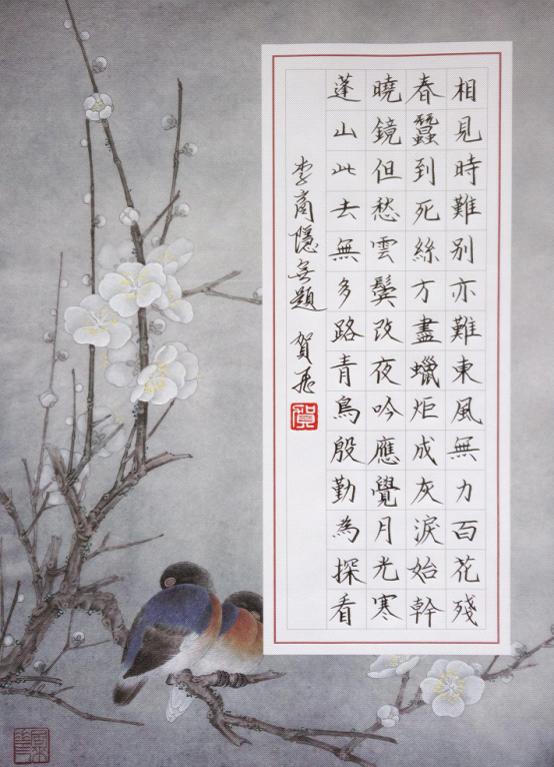 相見時難別亦難東風無力百花殘
春蠶到死絲方盡蠟炬成灰淚始幹
曉鏡但愁雲鬢改夜吟應覺月光寒
蓬山此去無多路青鳥殷勤為探看
李商隱無題 賀
賀